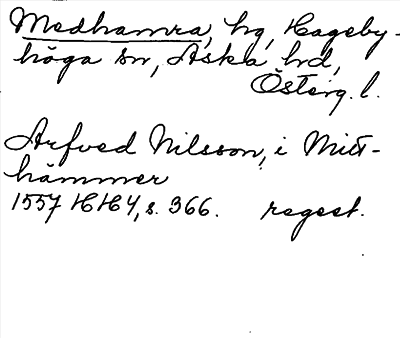 Medhamra, hg, Hageby-
höga sn, Aska hd,
Österg. l.
Arfved Nilsson, i Mitt-
hämmer
1557 HH4, s. 366. regest.